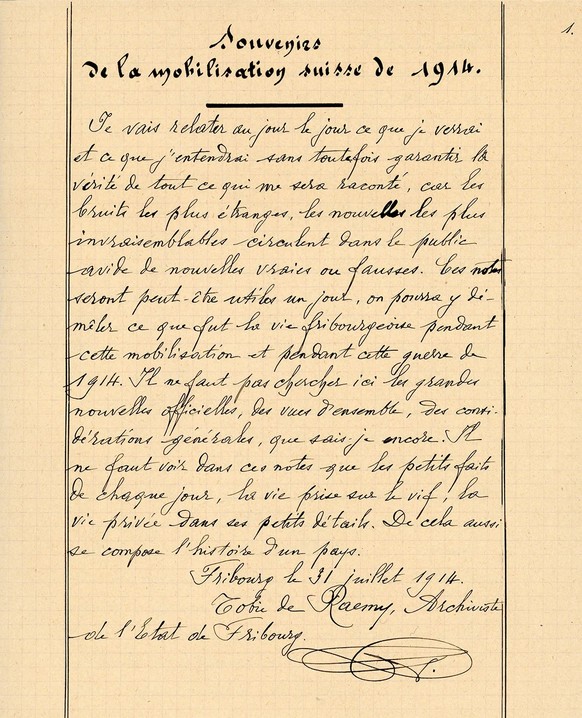 1.
Souvenirs
de la mobilisation suisse de 1914.
Je vais relater au jour le jour ce que je verrai
et ce que j'entendrai sans toutefois garantir la
vérité de tout ce qui me sera raconté, car les
bruits les plus étranges, les nouvelles les plus
invraisemblables circulent dans le public
avide de nouvelles vraies ou fausses. Ces notes
seront peut-être utiles un jour, on pourra y dé-
mêler ce que fut la vie fribourgeoise pendant
cette mobilisation et pendant cette guerre de
1914. Il ne faut pas chercher ici les grandes
nouvelles officielles, des vues d'ensemble, des consi-
dérations générales, que sais-je encore. Il
ne faut voir dans ces notes que les petits faits
de chaque jour, la vie prise sur le vif, la
vie privée dans ses petits détails. De cela aussi
se compose l'histoire d'un pays.
Fribourg le 31 juillet 1914.
Tobie de Raemy, Archiviste
de l'Etat de Fribourg.